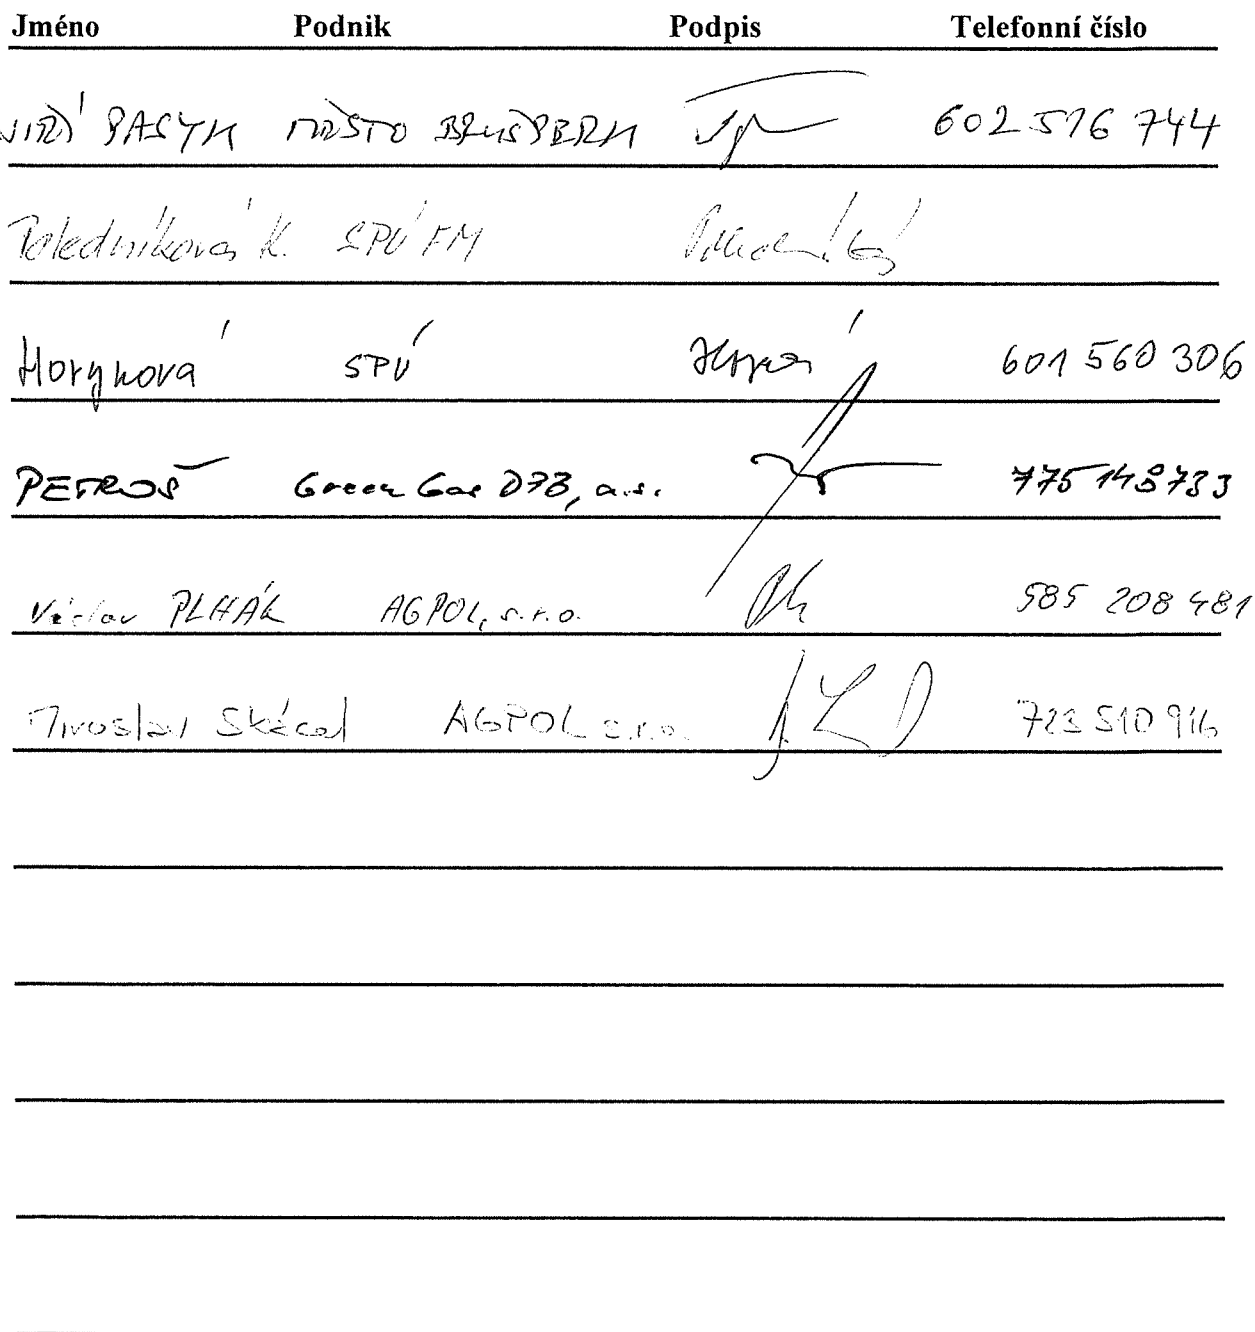 Jméno Podnik Podpis Telefonní číslo
JIŘÍ PASYK MĚSTO BRUŠPERK 602 516 744
Poledníková K. SPÚ FM
Horynová SPÚ 601 560 306
PETROŠ Green Gas DPB, a.s. 775 148 733
Václav PLHÁK AGPOL, s.r.o. 585 208 481
Miroslav Skácel AGPOL s.r.o. 723 510 916